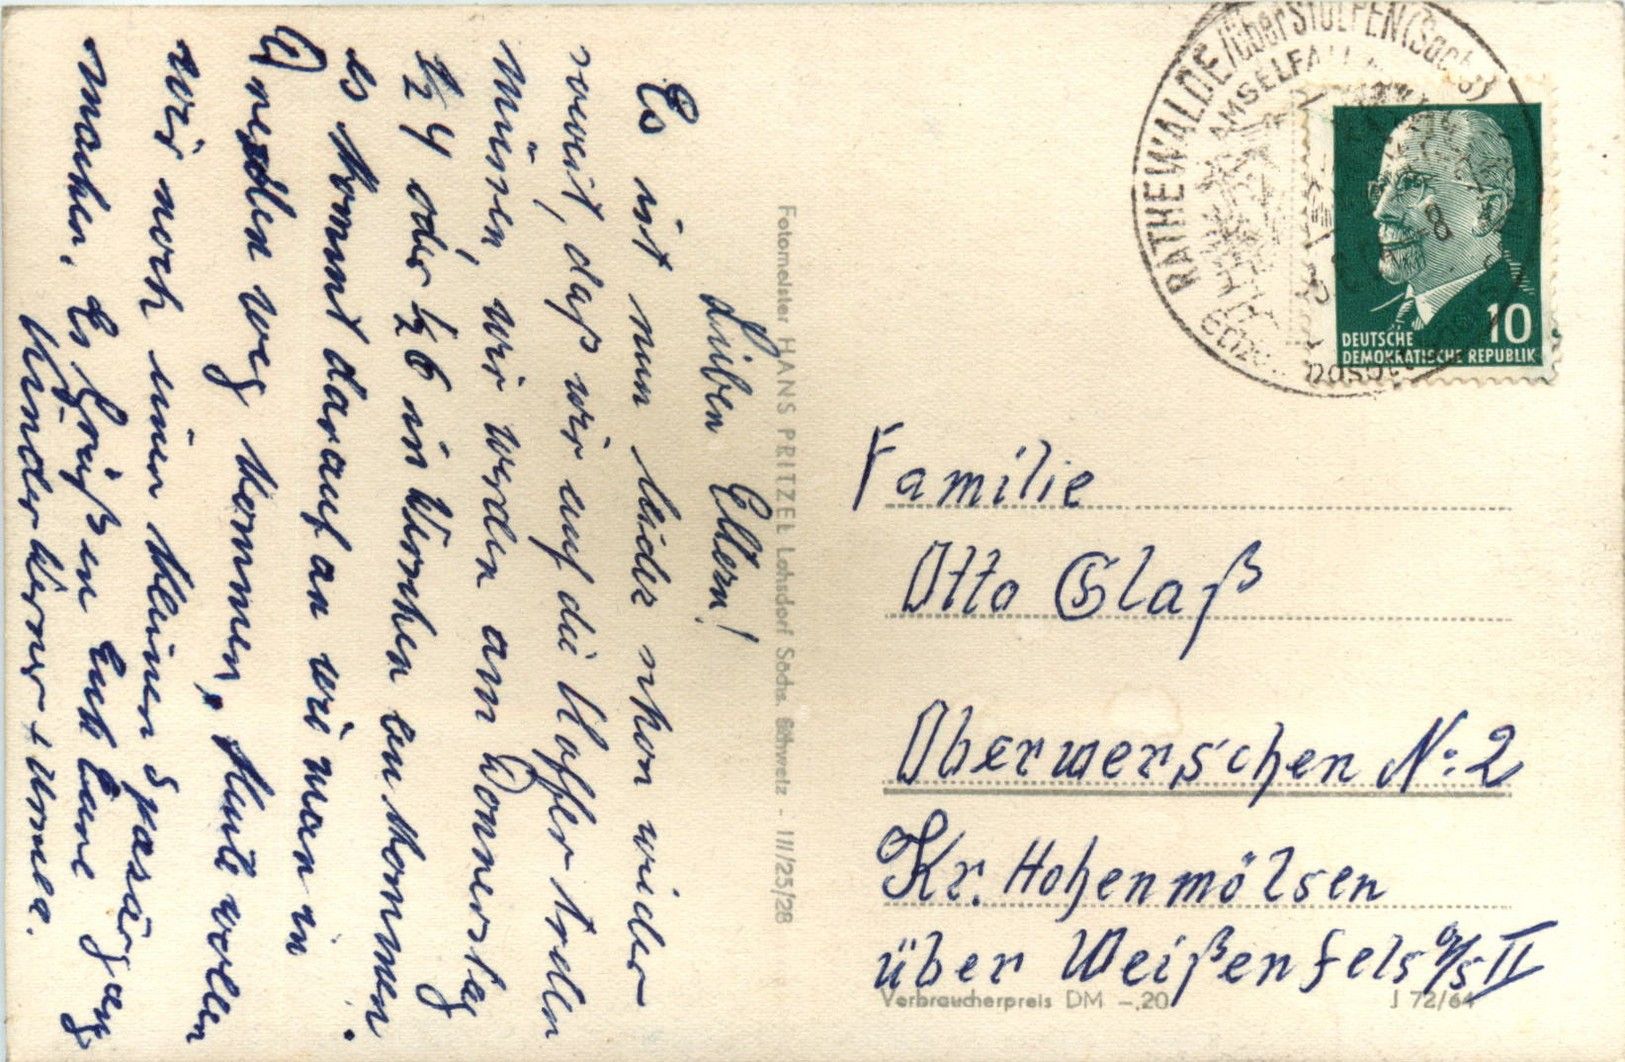 Lieben Eltern!
Es ist nun leider schon wieder
soweit, daß wir auf die Koffer treten
müssen, wir werden am Donnerstag
½ 4 oder ½ 6 in Werschen ankommen.
es kommt darauf an wie man in
Dresden weg kommen, Heute wollen
wir noch einen kleinen Spaziergang
machen. Es grüßen Euch Eure
Kinder Werner + Ursula.
Fotomeister HANS PRITZEL Lohsdorf Sächs. Schweiz - III/25/28
RATHEWALDE/über STOLPEN (Sachs)
AMSELFALL
8
10
DEUTSCHE
DEMOKRATISCHE REPUBLIK
Familie
Otto Glaß
Oberwerschen N: 2
Kr. Hohenmölsen
über Weißenfels a/S II
Verbraucherpreis DM -.20
J 72/64